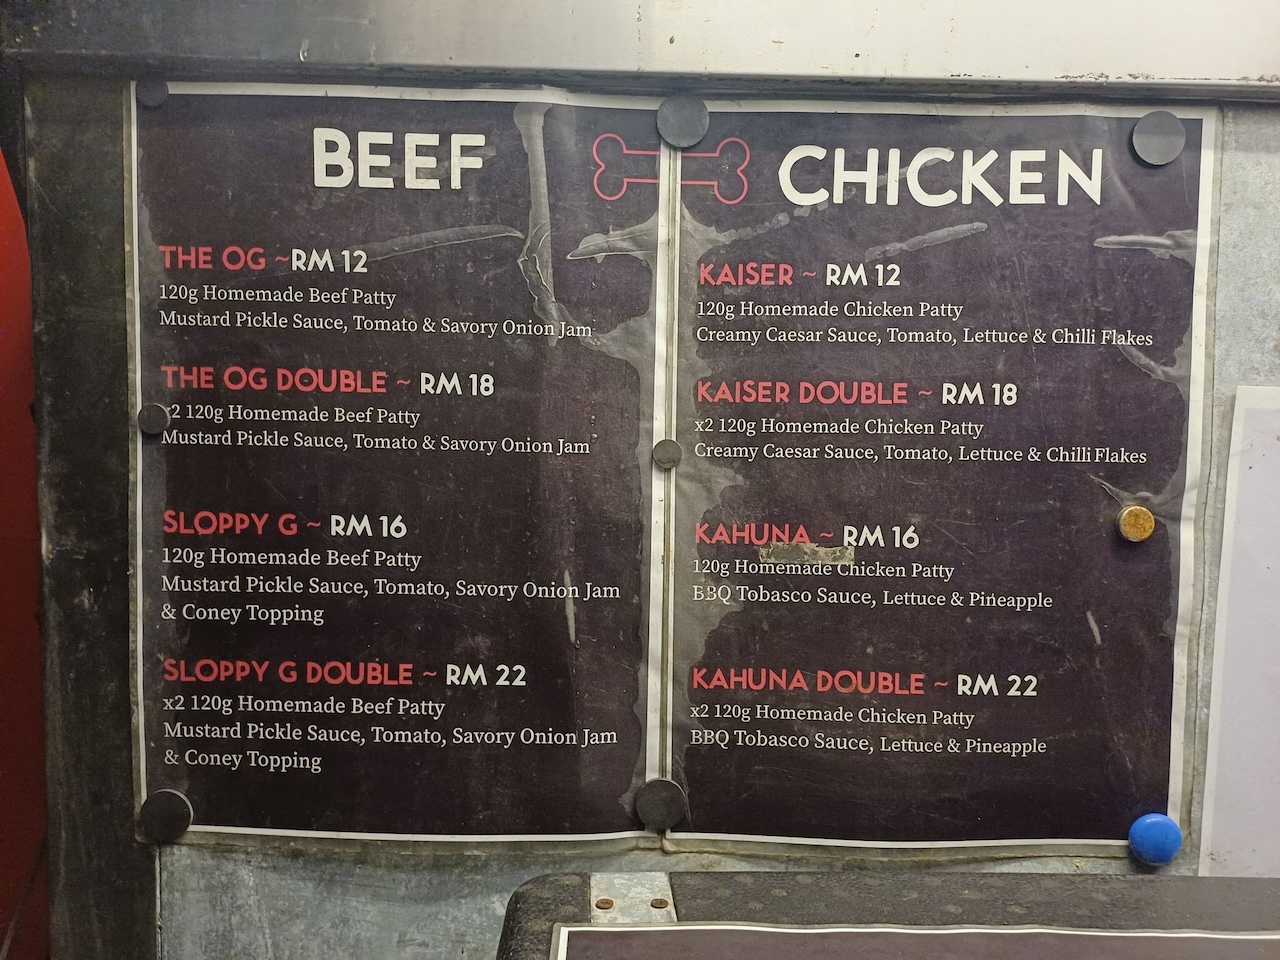 BEEF
THE OG ~RM 12
120g Homemade Beef Patty
Mustard Pickle Sauce, Tomato & Savory Onion Jam
THE OG DOUBLE ~ RM 18
x2 120g Homemade Beef Patty
Mustard Pickle Sauce, Tomato & Savory Onion Jam
SLOPPY G ~ RM 16
120g Homemade Beef Patty
Mustard Pickle Sauce, Tomato, Savory Onion Jam
& Coney Topping
SLOPPY G DOUBLE ~ RM 22
x2 120g Homemade Beef Patty
Mustard Pickle Sauce, Tomato, Savory Onion Jam
& Coney Topping
CHICKEN
KAISER ~ RM 12
120g Homemade Chicken Patty
Creamy Caesar Sauce, Tomato, Lettuce & Chilli Flakes
KAISER DOUBLE ~ RM 18
x2 120g Homemade Chicken Patty
Creamy Caesar Sauce, Tomato, Lettuce & Chilli Flakes
KAHUNA ~ RM 16
120g Homemade Chicken Patty
BBQ Tobasco Sauce, Lettuce & Pineapple
KAHUNA DOUBLE ~ RM 22
x2 120g Homemade Chicken Patty
BBQ Tobasco Sauce, Lettuce & Pineapple